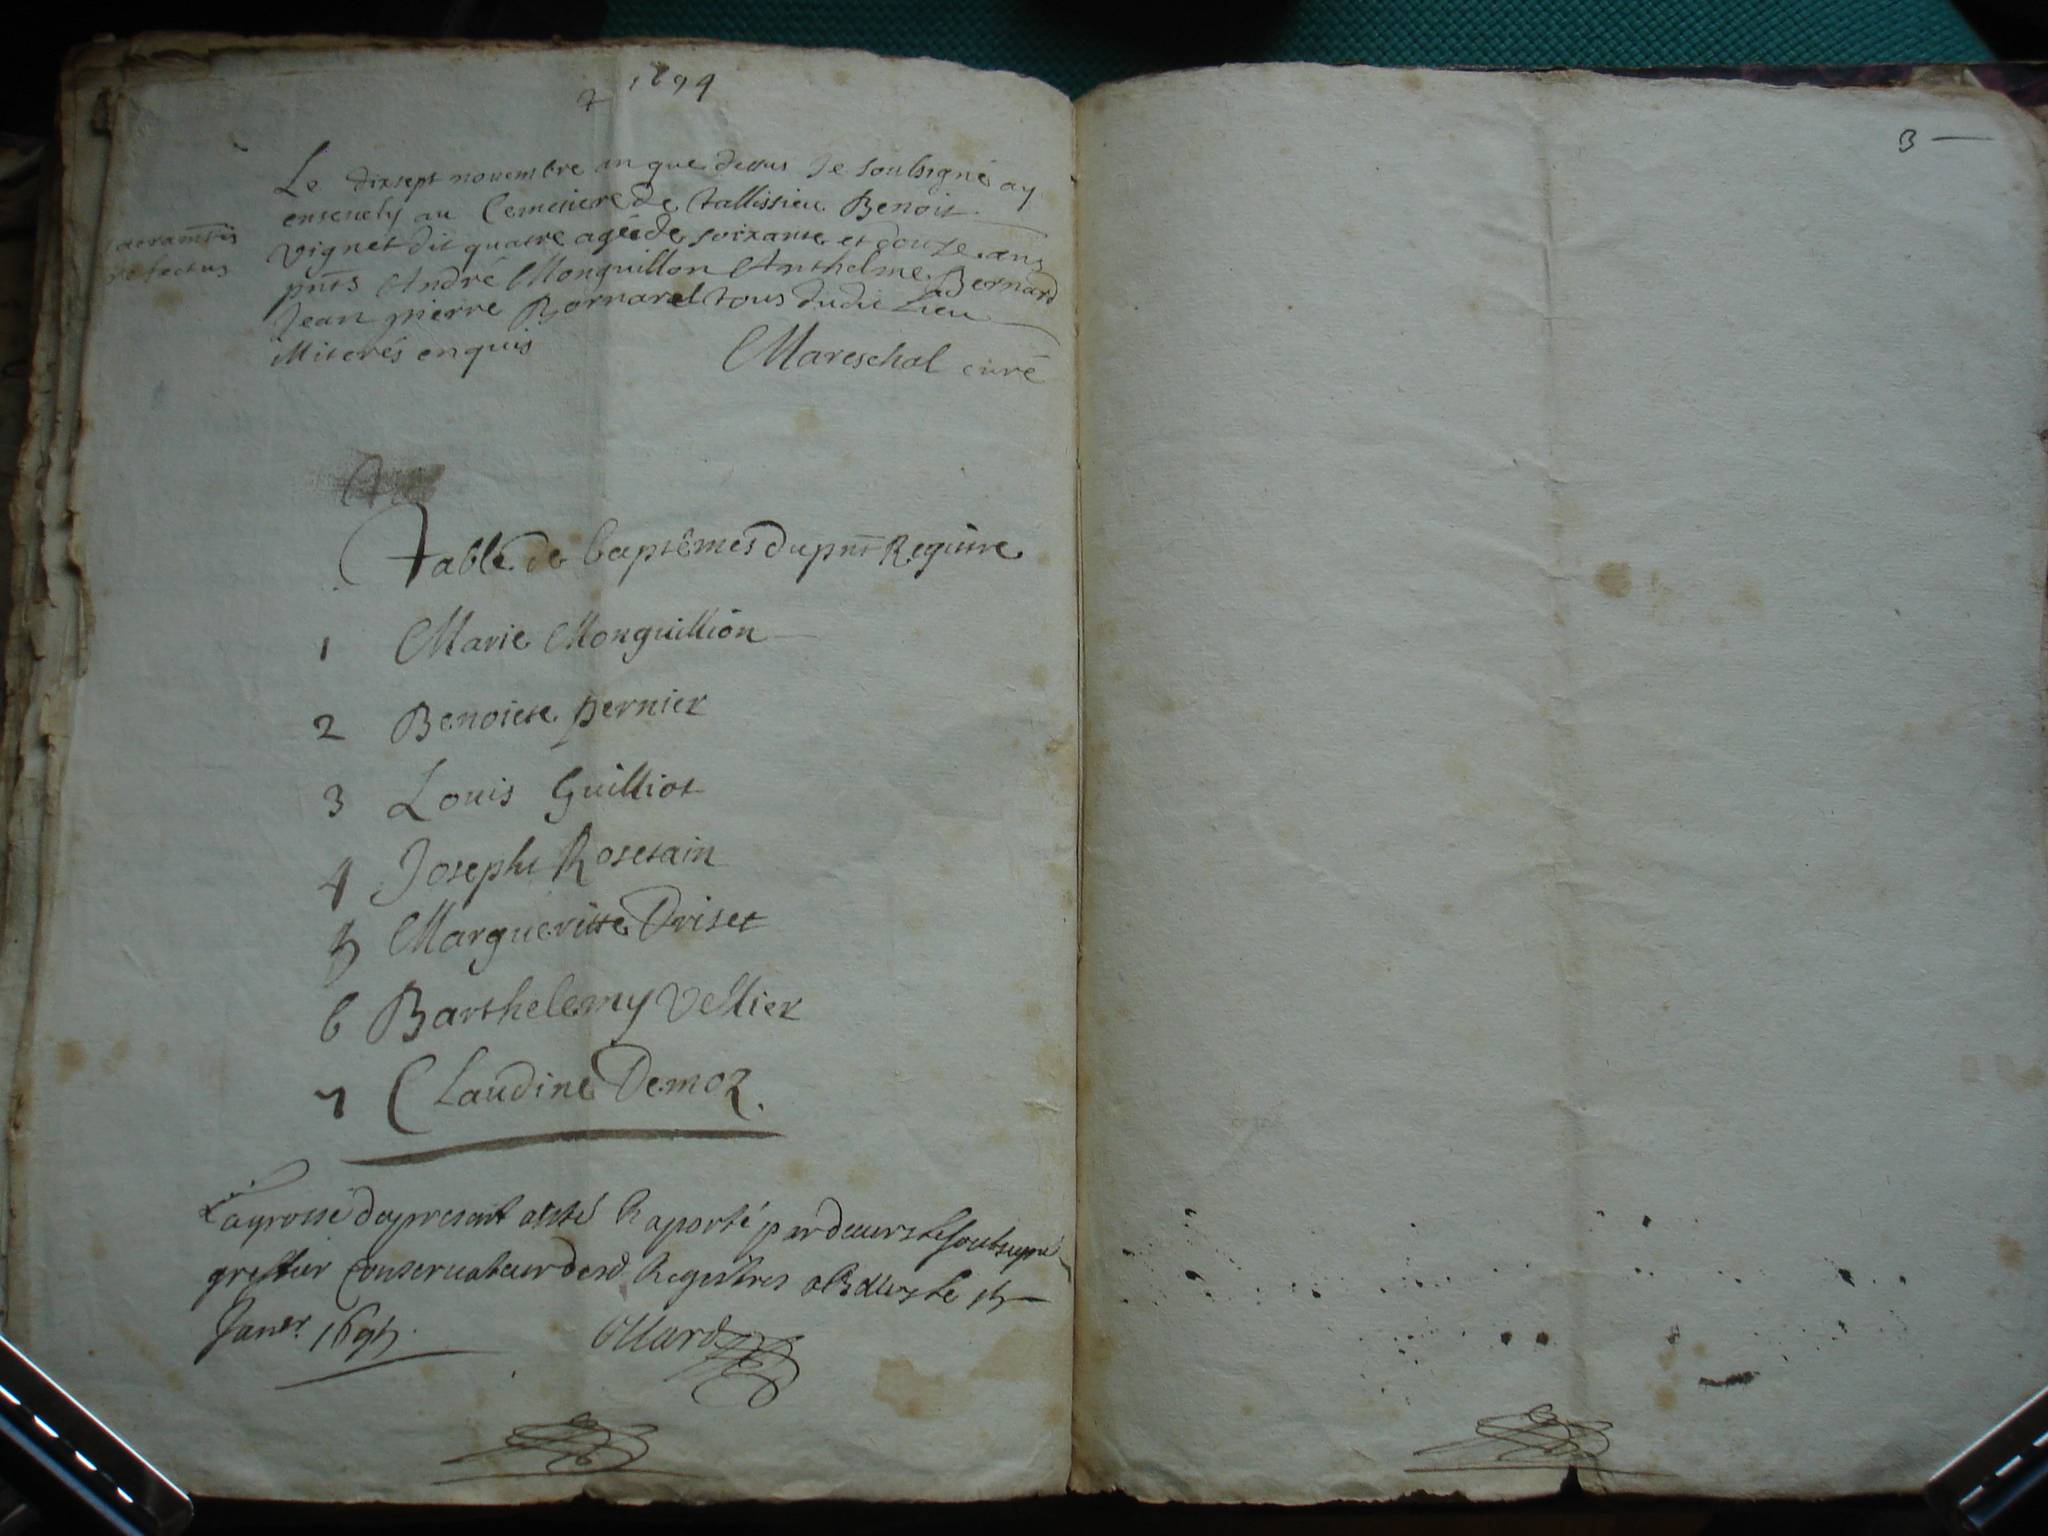 1694
Le dixsept novembre an que dessus Je soubsigné ay
ensevely au Cemetiere de tallissieu Benoit
sacramtis
refectus
vignet dit quatre agé de soixante et douze ans
pnts André Monguillon Anthelme Bernard
Jean pierre Bornarel tous dudit Lieu
illiterés enquis
Mareschal curé
Table de baptêmes du pnt Registre
1 Marie Monguillion
2 Benoiste pernier
3 Louis Guilliot
4 Josepht Rosetain
5 Margueritte Driset
6 Barthelemy Vellier
7 Claudine Demoz.
La grosse du present a esté Raporté pardeuers le soubsigné
greffier Conseruateur desd Registres a Belley le 15
Janer. 1695.
Ollard
3